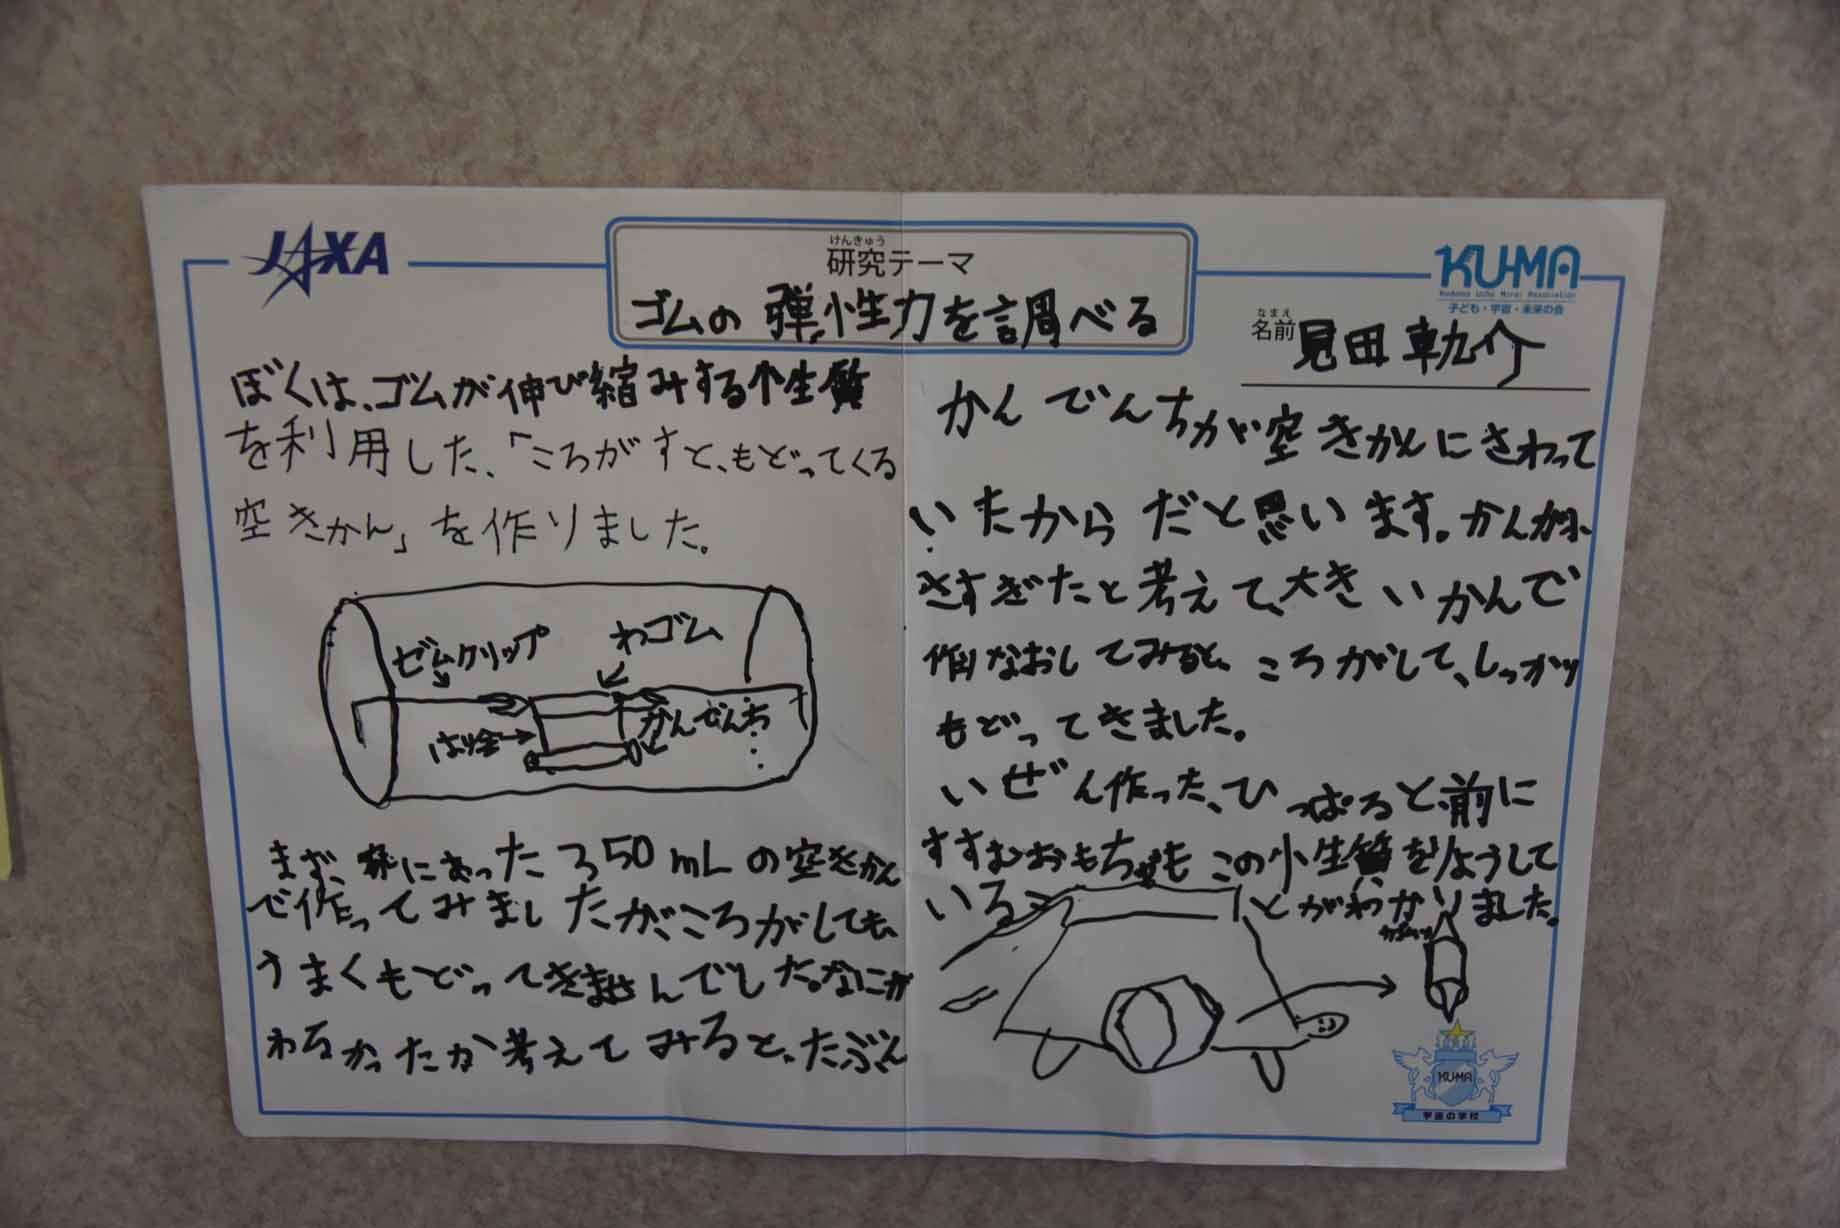 JAXA
けんきゅう
研究テーマ
ゴムの弾性力を調べる
KU-MA
Kodomo Uchu Mirai Association
子ども・宇宙・未来の会
なまえ
名前
見田軌介
ぼくは、ゴムが伸び縮みする性質
を利用した、「ころがすと、もどってくる
空きかん」を作りました。
ゼムクリップ
わゴム
はり金
かんでんち
まず、家にあった350mLの空きかん
で作ってみましたが、ころがしても、
うまくもどってきませんでした。なにが
わるかったか考えてみると、たぶん
かんでんちが空きかんにさわって
いたからだと思います。かんが小
さすぎたと考えて、大きいかんで
作りなおしてみると、ころがして、しっかり
もどってきました。
いぜん作った、ひっぱると、前に
すすむおもちゃもこの性質をりようして
いることがわかりました。
KU-MA
宇宙の学校